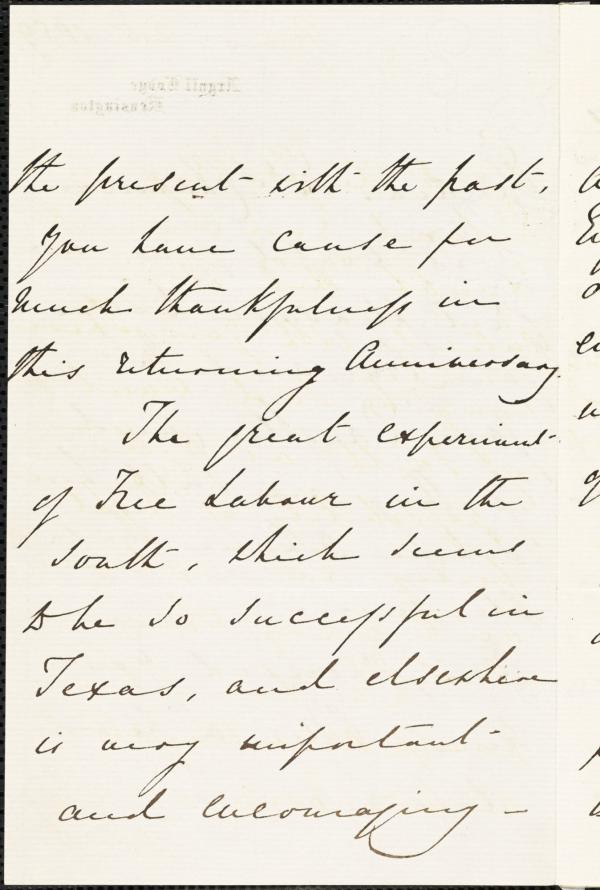 Argyll Lodge
Kensington
the present with the past,
you have cause for
much thankfulness in
this returning Anniversary.
The great experiment
of Free Labour in the
South, which seems
to be so successful in
Texas, and elsewhere
is very important
and encouraging –